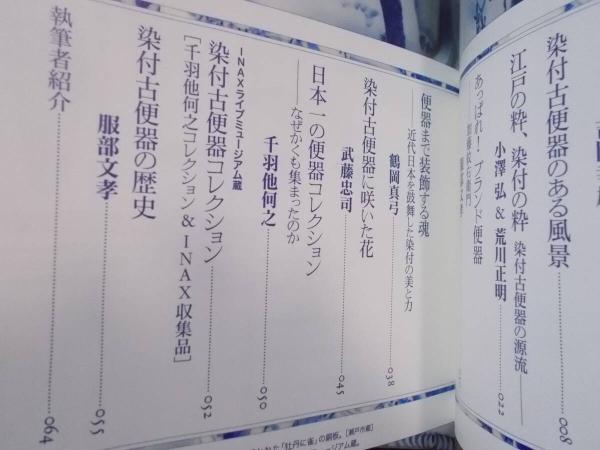 染付古便器のある風景
008
江戸の粋、染付の粋 染付古便器の源流
小澤 弘 & 荒川正明
022
あっぱれ！ブランド便器
便器まで装飾する魂
近代日本を鼓舞した染付の美と力
鶴岡真弓
038
染付古便器に咲いた花
武藤忠司
045
日本一の便器コレクション
なぜかくも集まったのか
千羽他何之
050
INAXライブミュージアム蔵
染付古便器コレクション
［千羽他何之コレクション & INAX収集品］
052
染付古便器の歴史
服部文孝
055
執筆者紹介
064
「牡丹に雀」の銅板。［瀬戸市蔵］